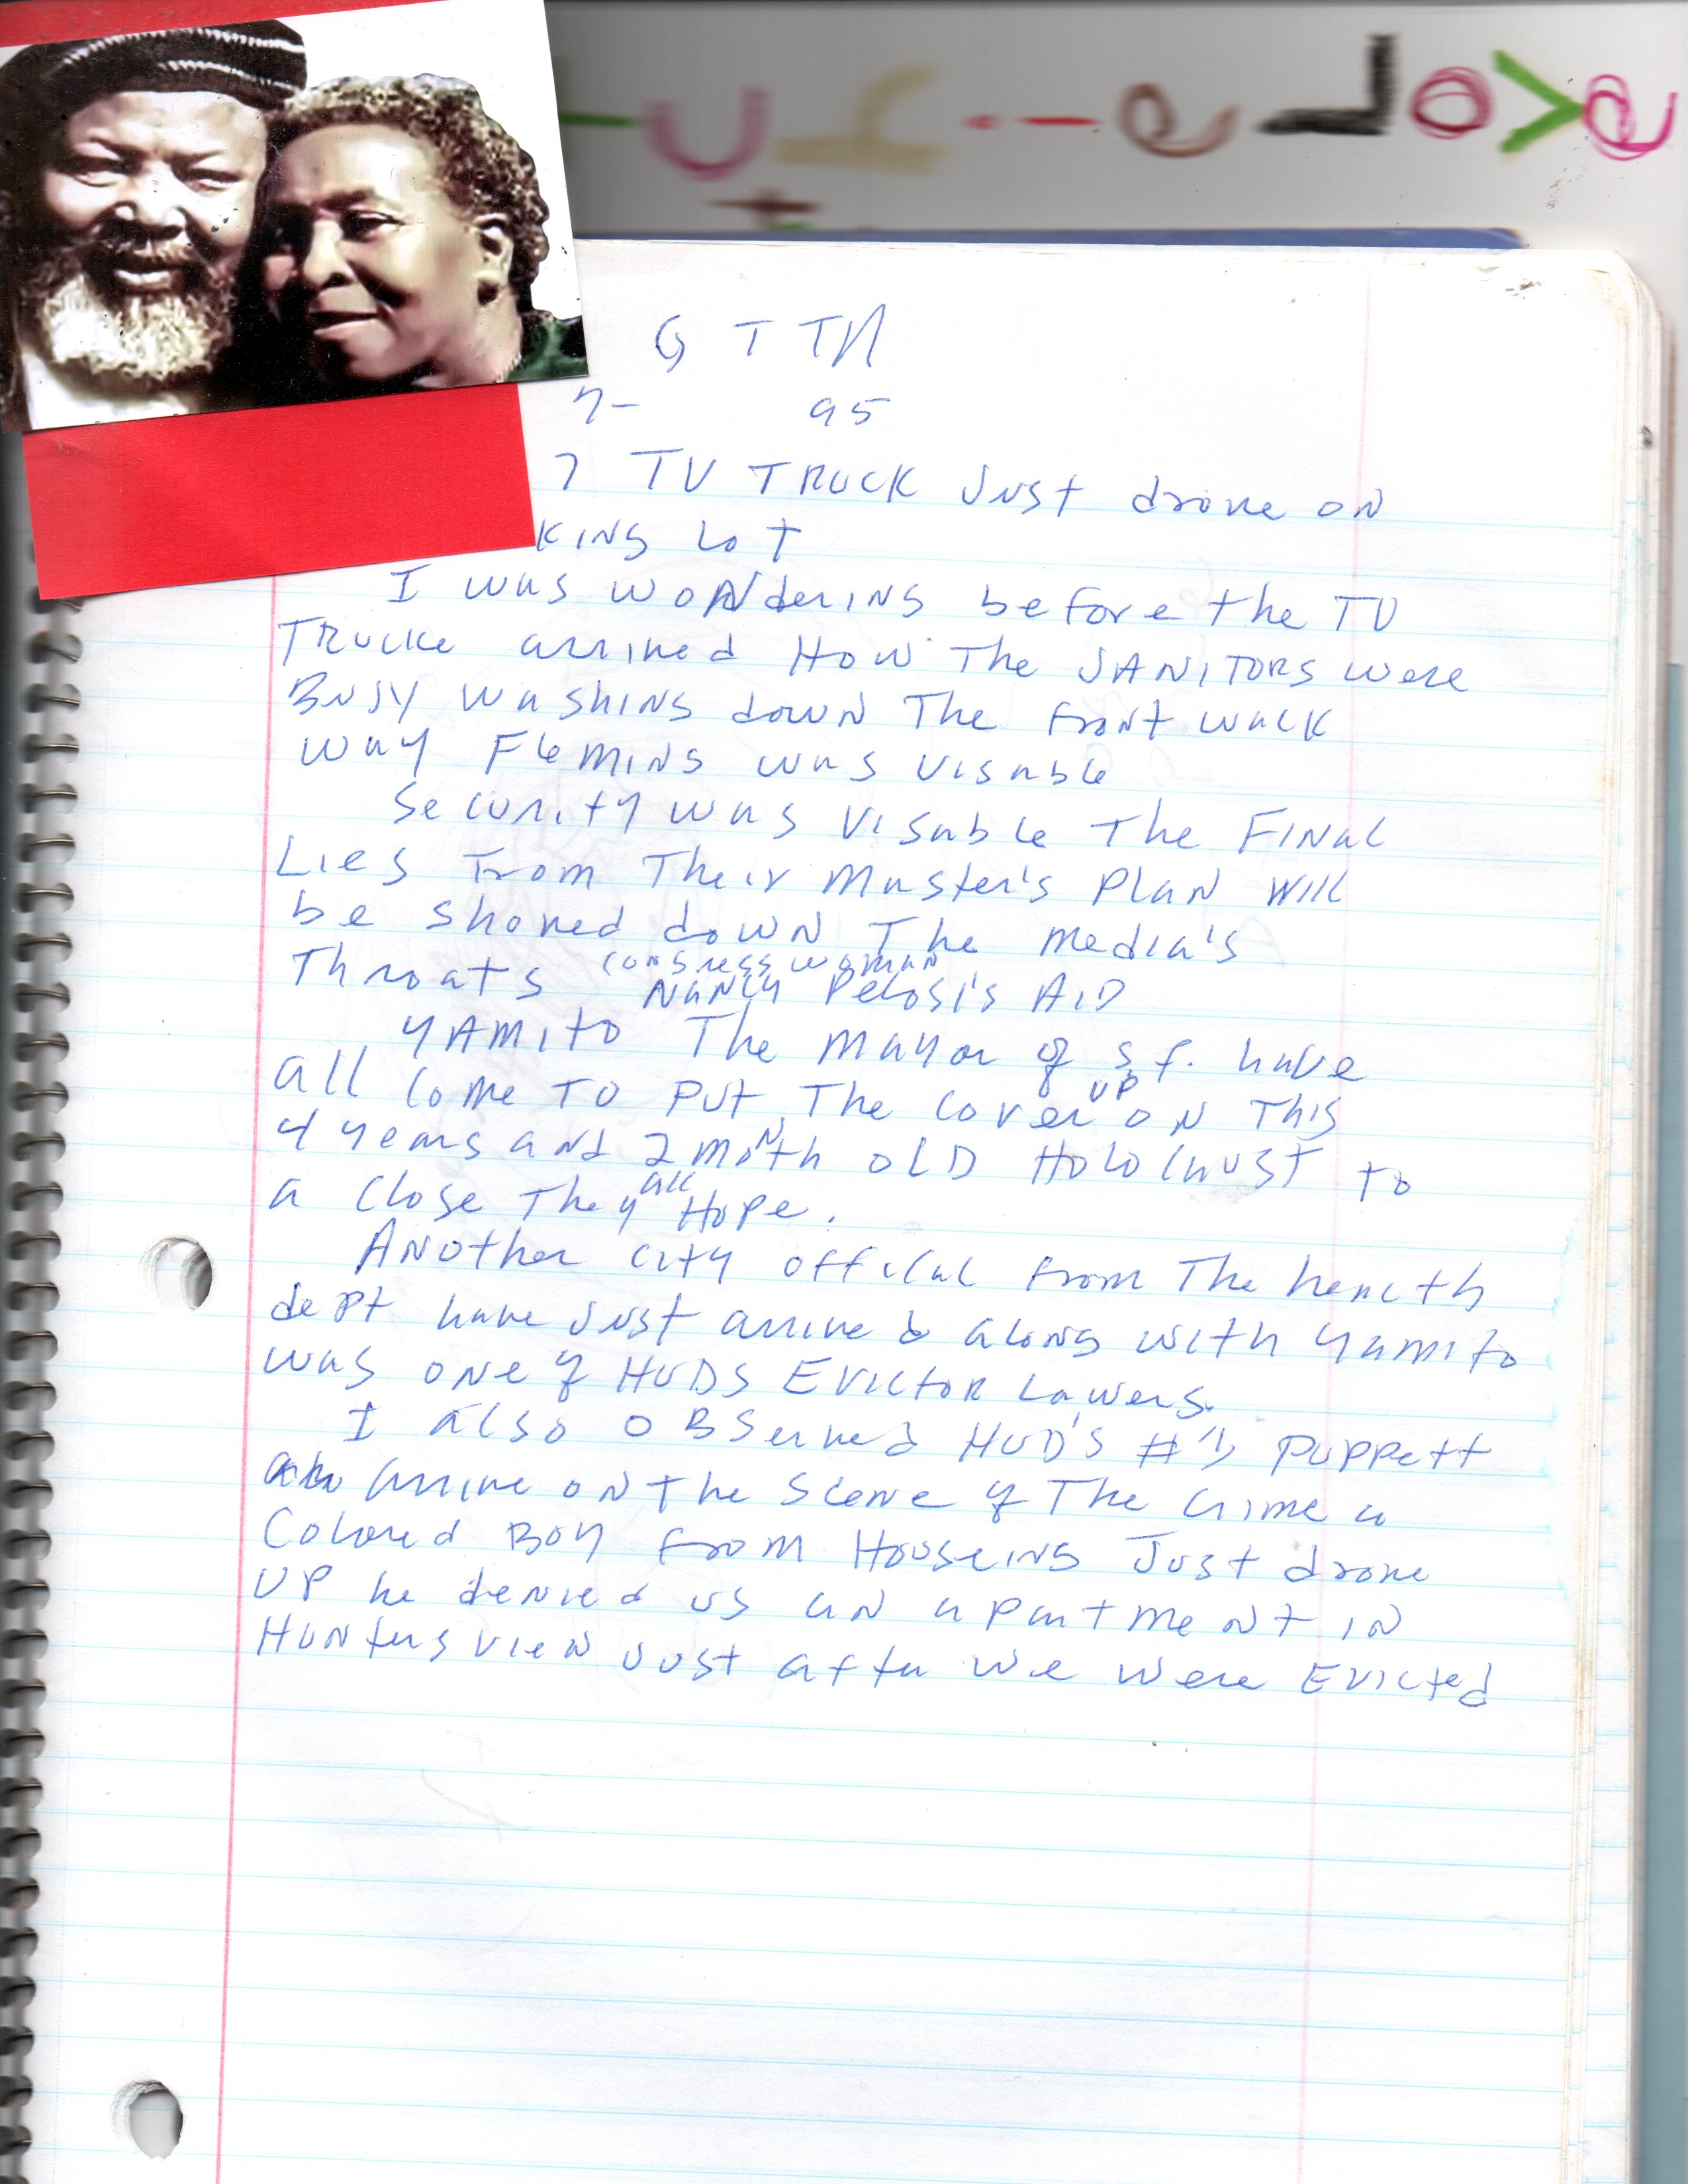 G T TN
7- 95
7 TV TRUCK Just drove on
KING LOT
I was wondering before the TV
TRucke arrived How The JANITORS were
Busy washing down The front walk
way Fleming was visable
Security was visable The FINAL
Lies From Their Master's Plan will
be shoved down The media's
Throats congress woman
Nancy Pelosi's AID
YAMITO The Mayor of S.f. have
all come TO put The cover up on This
4 years and 2 month OLD Holocaust to
a close They all Hope.
Another city offical from The health
dept have Just arrived along with yamito
was one of HUDS Evictor Lawers.
I also OBServed HUD's #1, puppett
arrive on the scene of The crime a
Colored Boy from Houseing Just drove
UP he denied us an apartment in
Hunters view Just after we were Evicted